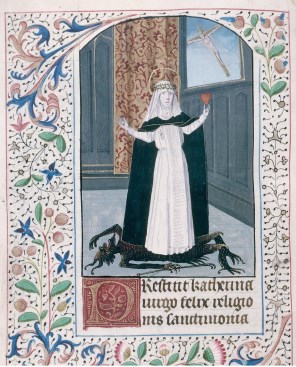 PRestitit katherina
virgo felix religio
nis sanctimonia